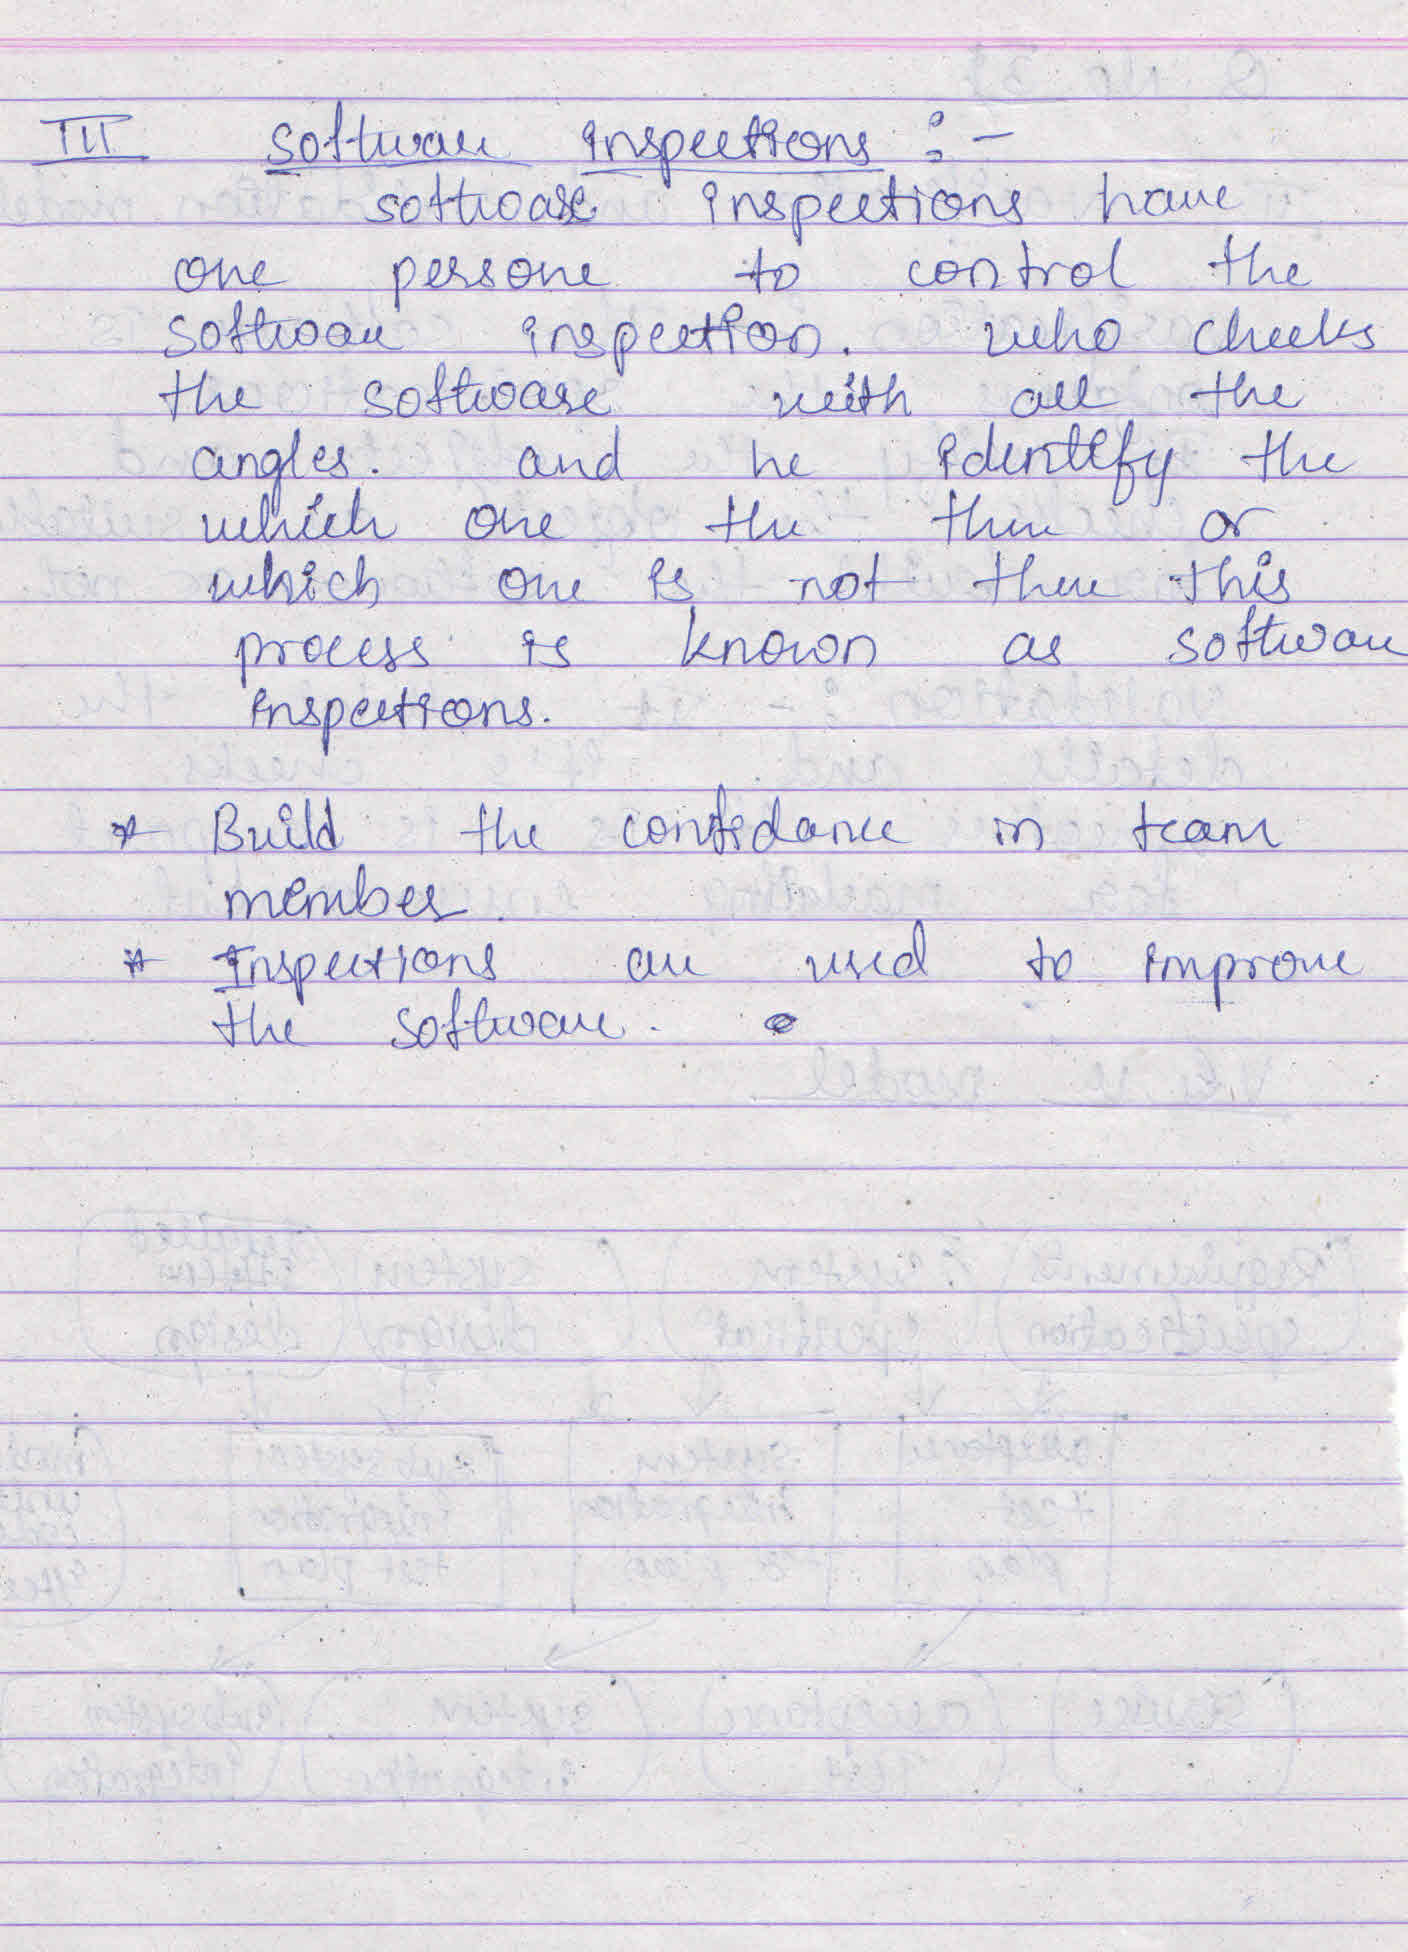 III Software inspections :-
software inspections have
one persone to control the
software inspection. who checks
the software with all the
angles. and he identify the
which one the there or
which one is not there this
process is known as software
inspections.
* Build the confidance in team
member.
* Inspections are used to improve
the software.